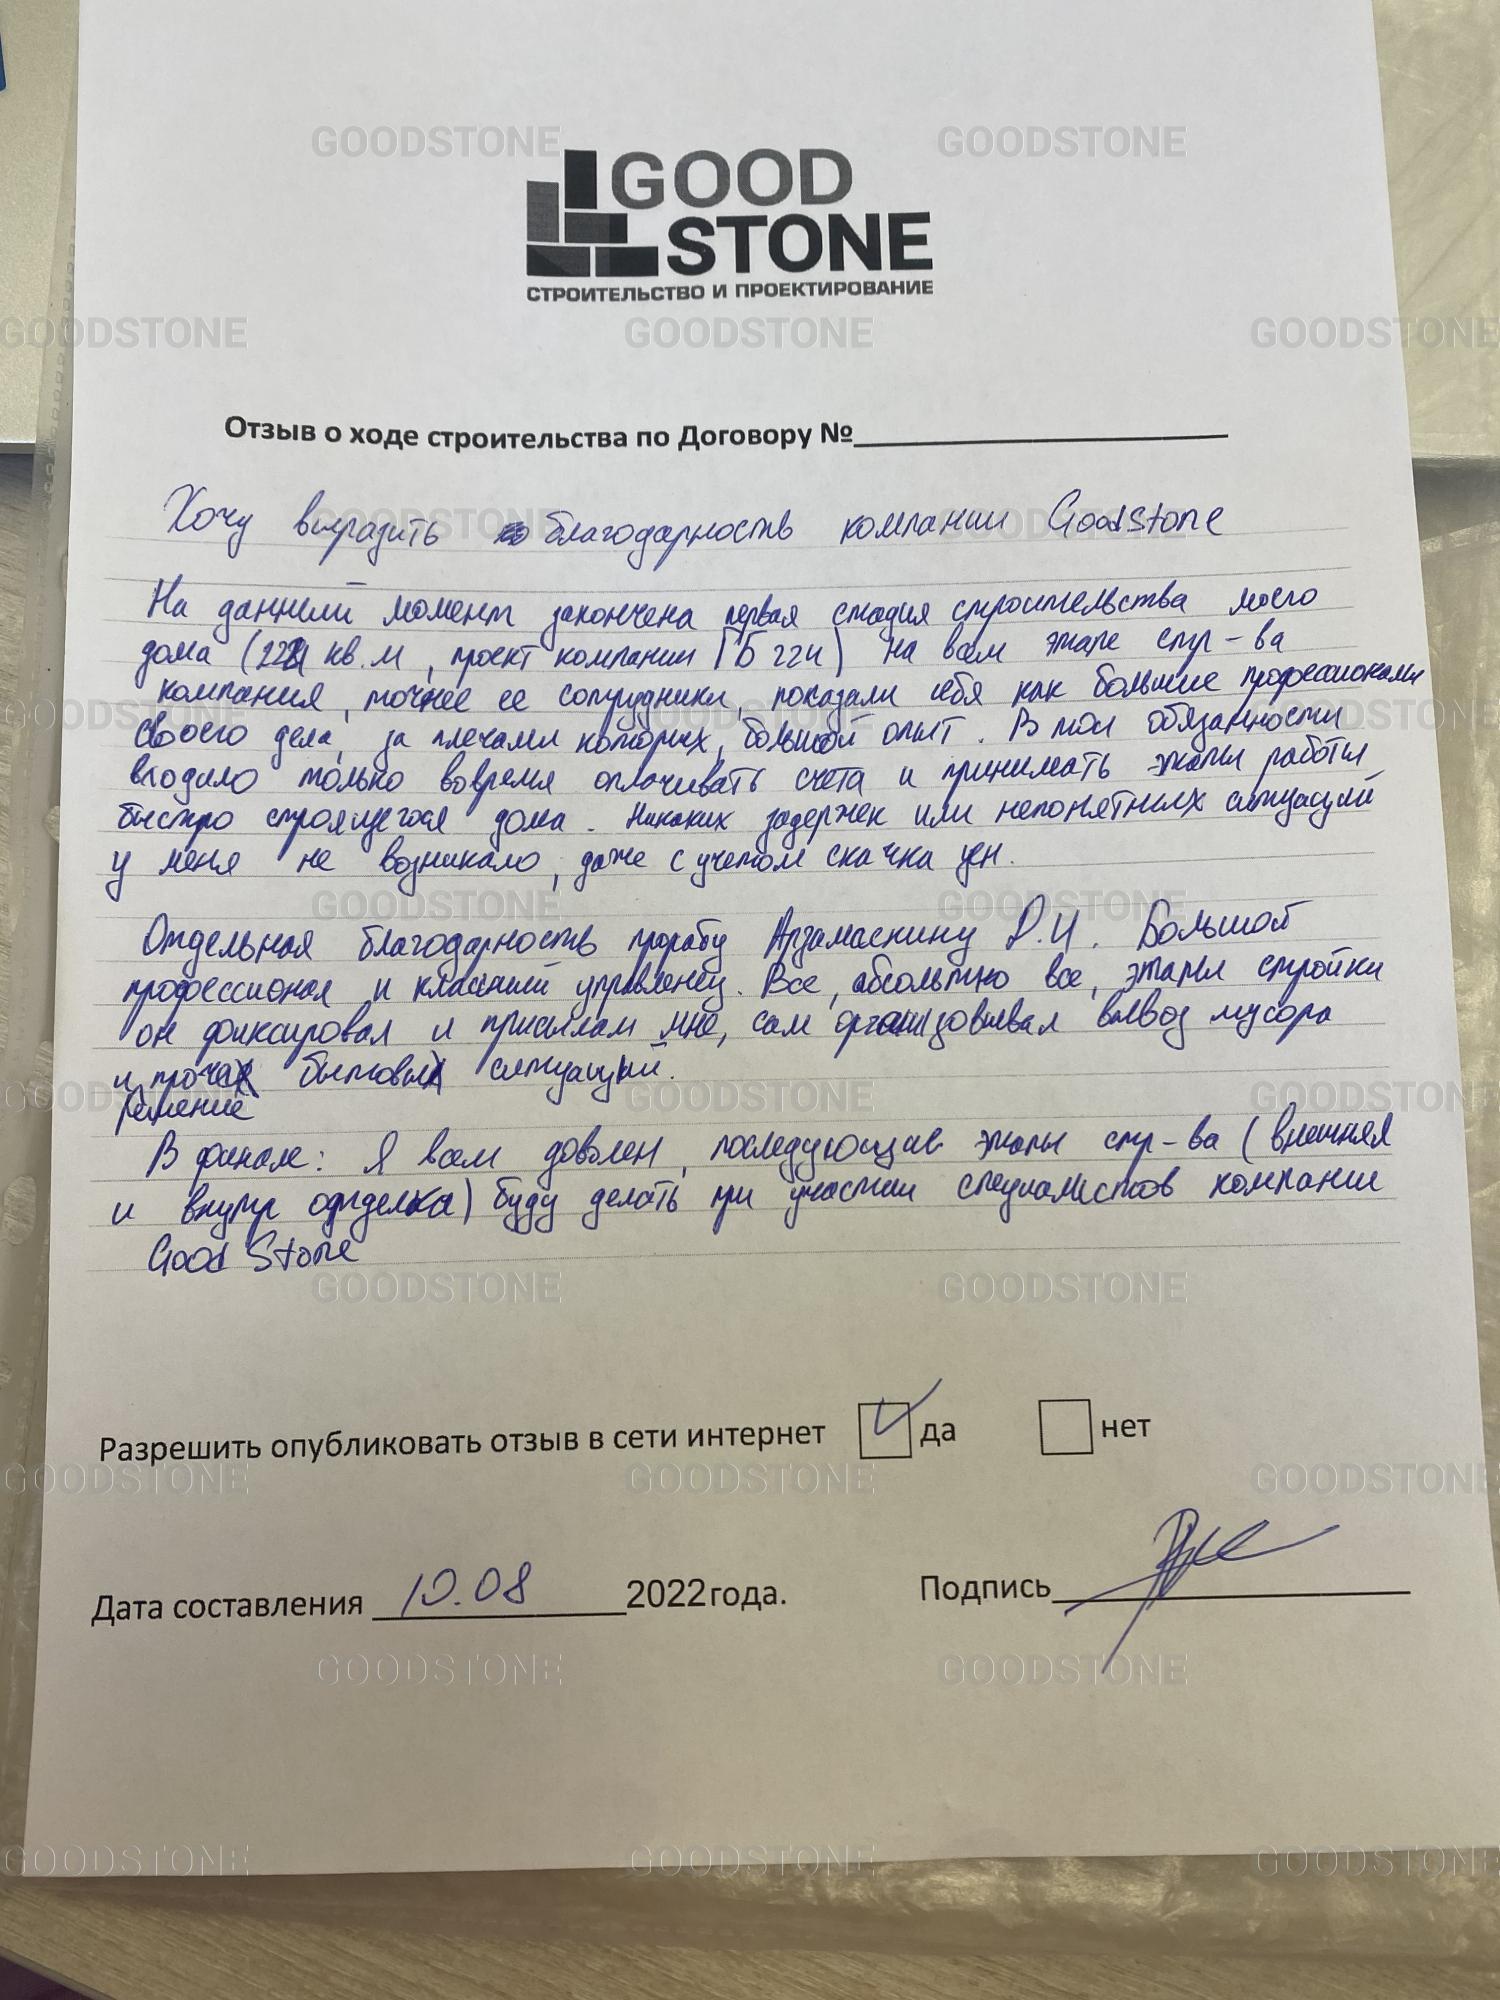 GOOD
STONE
СТРОИТЕЛЬСТВО И ПРОЕКТИРОВАНИЕ
Отзыв о ходе строительства по Договору №
Хочу выразить благодарность компании GoodStone
На данный момент закончена первая стадия строительства моего
дома (221 кв.м, проект компании на всем этапе стр-ва
компания, точнее ее сотрудники, показали себя как большие профессионалы
своего дела, за плечами которых, большой опыт. В мои обязанности
входило только вовремя оплачивать счета и принимать этапы работы
быстро строящегося дома. Никаких задержек или непонятных ситуаций
у меня не возникало, даже с учетом скачка цен.
Отдельная благодарность прорабу Арзамаскину Р.И. Большой
профессионал и классный управленец. Все, абсолютно все, этапы стройки
он фиксировал и присылал мне, сам организовывал вывоз мусора
и бытовых ситуаций.
решение
В финале: Я всем доволен, последующие этапы стр-ва (внешняя
и внутр отделка) буду делать при участии специалистов компании
Good Stone
Разрешить опубликовать отзыв в сети интернет да нет
Дата составления 10.08 2022года. Подпись
GOODSTONE